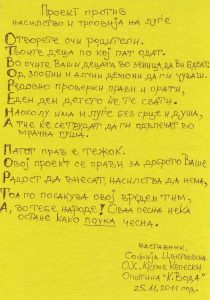 Проект против
насилство и трговија на луѓе
Отворете очи родители.
Твоите деца по кој пат одат.
Во очите Ваши децата, во зеница да ги
Од злобни и алчни демони да ги чуваш.
Редовно проверки прави и прати,
Еден ден детето ќе те сфати.
Насколу има и луѓе без срце и душа,
А тие ќе се трудат да ги одвлечат во
мрачна дупка.
Патот прав е тежок.
Овој проект се прави за доброто Ваше
Радост да внесат, насилства да нема,
Тоа го посакува овој вреден тим,
А, во тебе народе! Оваа песна нека
остане како поука чесна.
наставник,
Софија Цветковска
О.У. „Круме Кепески"
Општина "К. Вода"
25.11.2011 год.